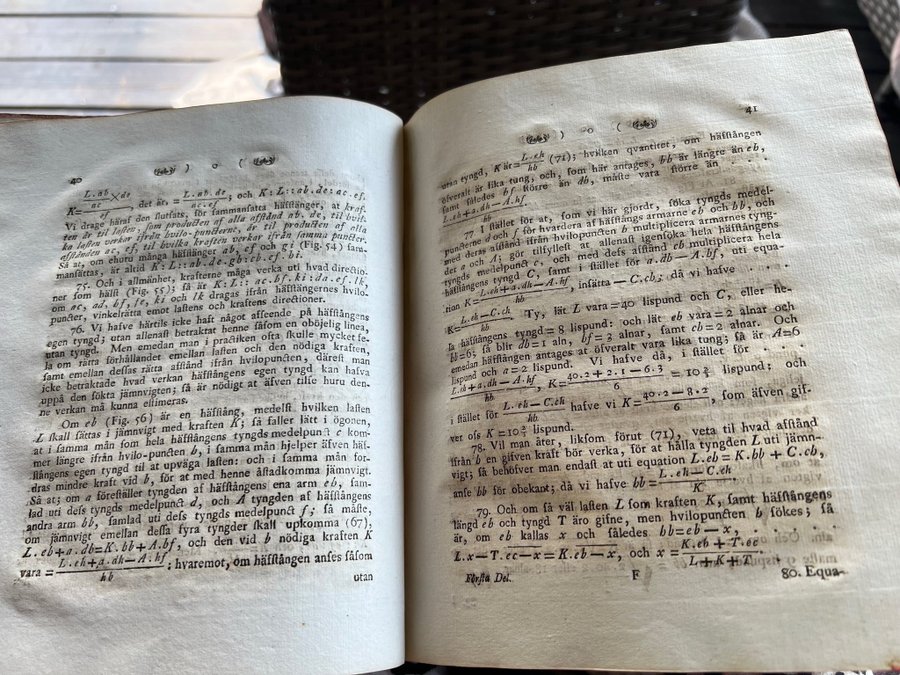 40 ) o (
K = L.ab/ac × de/ef, det är, = L.ab.de/ac.ef; och K:L::ab.de:ac.ef.
Vi drage häraf den slutsats, för sammansatta häfstänger, at kraf-
ten är til lasten, som producten af alla afstånd ab, de, til hvil-
ka lasten verkar ifrån hvilo-puncterne, är til producten af alla
afstånden ac, ef, til hvilka kraften verkar ifrån samma puncter.
Så at, om ehuru många häfstänger ab, ef och gi (Fig. 54) sam-
mansättas, är altid K:L::ab.de.gb:cb.ef.bi.
75. Och i allmänhet, krafterne måga verka uti hvad directio-
ner som hälst (Fig. 55); så är K:L::ac.bf.ki:da.ef.lk,
om ac, ad, bf, fe, ki och lk dragas ifrån häfstängernes hvilo-
puncter, vinkelrätta emot lastens och kraftens directioner.
76. Vi hafve härtils icke haft något afseende på häfstångens
egen tyngd; utan allenast betraktat henne såsom en oböjelig linea,
utan tyngd. Men emedan man i practiken ofta skulle mycket fe-
la om rätta förhållandet emellan lasten och den nödiga kraften,
samt emellan dessas rätta afstånd ifrån hvilopuncten, därest man
icke betraktade hvad verkan häfstångens egen tyngd kan hafva
uppå den sökta jämnvigten; så är nödigt at äfven tilse huru den-
ne verkan må kunna estimeras.
Om eb (Fig. 56) är en häfstång, medelst hvilken lasten
L skall sättas i jämnvigt med kraften K; så faller lätt i ögonen,
at i samma mån som hela häfstångens tyngds medelpunct c kom-
mer längre ifrån hvilo-puncten b, i samma mån hjelper äfven häf-
stångens egen tyngd til at upväga lasten: och i samma mån for-
dras mindre kraft vid b, för at med henne åstadkomma jämnvigt.
Så at; om a föreställer tyngden af häfstångens ena arm eb, sam-
lad uti dess tyngds medelpunct d, och A tyngden af häfstångens
andra arm bb, samlad uti dess tyngds medelpunct f; så måste,
om jämnvigt emellan dessa fyra tyngder skall upkomma (67),
L.eb+a.db=K.bb+A.bf, och den vid b nödiga kraften K
vara = L.eh+a.dh—A.hf/hb; hvaremot, om häfstången anses såsom
utan
) o ( 41
utan tyngd, K är = L.eh/hb (71); hvilken qvantitet, om häfstången
öfveralt är lika tung, och, som här antages, bb är längre än eb,
samt således bf större än db, måste vara större än
L.eh+a.dh—A.hf/hb.
77. I stället för at, som vi här gjordt, söka tyngds medel-
puncterne d och f för hvardera af häfstångs armarne eb och bb, och
med deras afstånd ifrån hvilopuncten b multiplicera armarnes tyng-
der a och A; gör tilfyllest at allenast igensöka hela häfstångens
tyngds medelpunct c, och med dess afstånd cb multiplicera hela
häfstångens tyngd C, samt i stället för a.db—A.bf, uti equa-
tion K = L.eh+a.dh—A.hf/hb, insätta —C.cb; då vi hafve
K = L.eh—C.ch/hb. Ty, låt L vara = 40 lispund och C, eller he-
la häfstångens tyngd = 8 lispund: och låt eb vara = 2 alnar och
bb = 6; så blir db = 1 aln, bf = 3 alnar, samt cb = 2 alnar. Och
emedan häfstången antages at öfveralt vara lika tung; så är A = 6
lispund och a = 2 lispund. Vi hafve då, i stället för
L.eh+a.dh—A.hf/hb, K = 40.2+2.1—6.3/6 = 10⅔ lispund; och
i stället för L.eh—C.ch/hb hafve vi K = 40.2—8.2/6, som äfven gif-
ver oss K = 10⅔ lispund.
78. Vil man åter, liksom förut (71), veta til hvad afstånd
ifrån b en gifven kraft bör verka, för at hålla tyngden L uti jämn-
vigt; så behöfver man endast at uti equation L.eb=K.bb+C.cb,
anse bb för obekant; då vi hafve bb = L.eh—C.ch/K.
79. Och om så väl lasten L som kraften K, samt häfstångens
längd eb och tyngd T äro gifne, men hvilopuncten b sökes; så
är, om eb kallas x och således bb=eb—x,
L.x—T.ec—x=K.eb—x, och x = K.eb+T.ec/L+K+T.
Första Del. F 80. Equa-